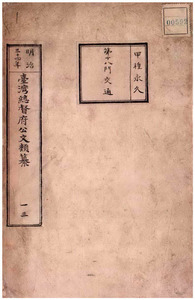 甲種永久
第十八門交通
明治
三十四年
臺灣總督府公文類纂
一五